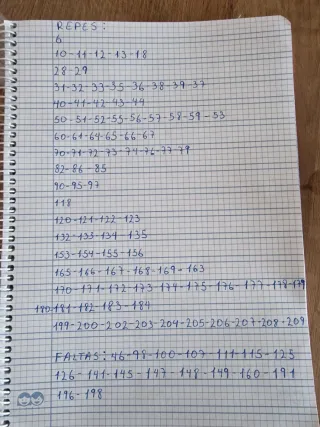 REPES:
6
10-11-12-13-18
28-29
31-32-33-35-36-38-39-37
40-41-42-43-49
50-51-52-55-56-57-58-59-53
60-61-64-65-66-67
70-71-72-73-74-76-77-79
82-86-85
90-95-97
118
120-121-122-123
132-133-134-135
153-154-155-156
165-166-167-168-169-163
170-171-172-173-174-175-176-177-178-179
180-181-182-183-184
199-200-202-203-204-205-206-207-208-209
FALTAS: 46-98-100-107-111-115-125
126-141-145-147-148-149-160-191
196-198